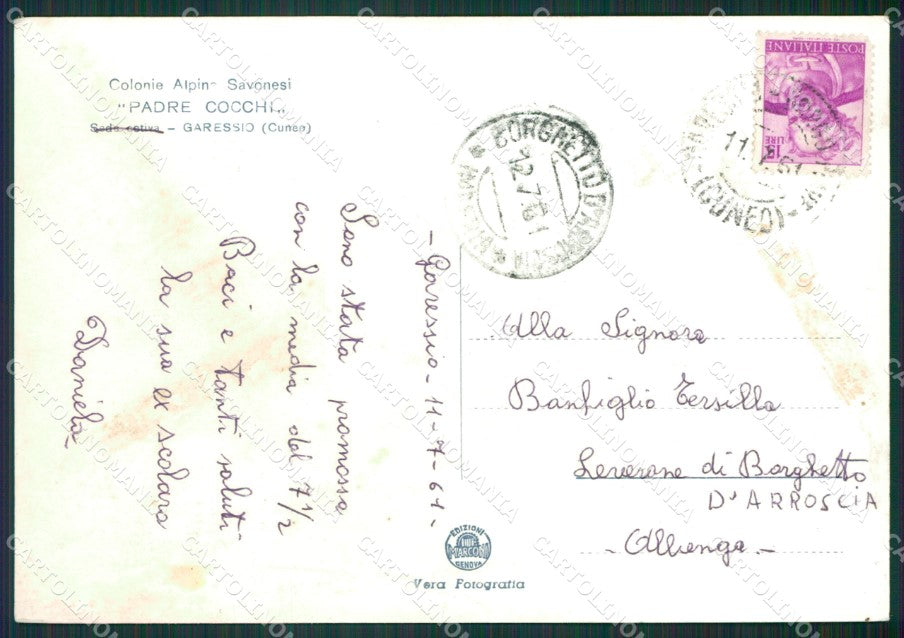 Colonie Alpine Savonesi
"PADRE COCCHI„
Sede estiva - GARESSIO (Cuneo)
- Garessio - 11-7-61 -
Sono stata promossa
con la media del 7 1/2
Baci e tanti saluti
la sua ex scolara
Daniela
BORGHETTO D'ARROSCIA
12.7.61
POSTE ITALIANE
LIRE 15
11.7.61
(CUNEO)
Alla Signora
Banfiglio Tersilla
Leverone di Borghetto
D'ARROSCIA
- Albenga -
EDIZIONI
MARCONI
GENOVA
Vera Fotografia
CARTOLINOMANIA